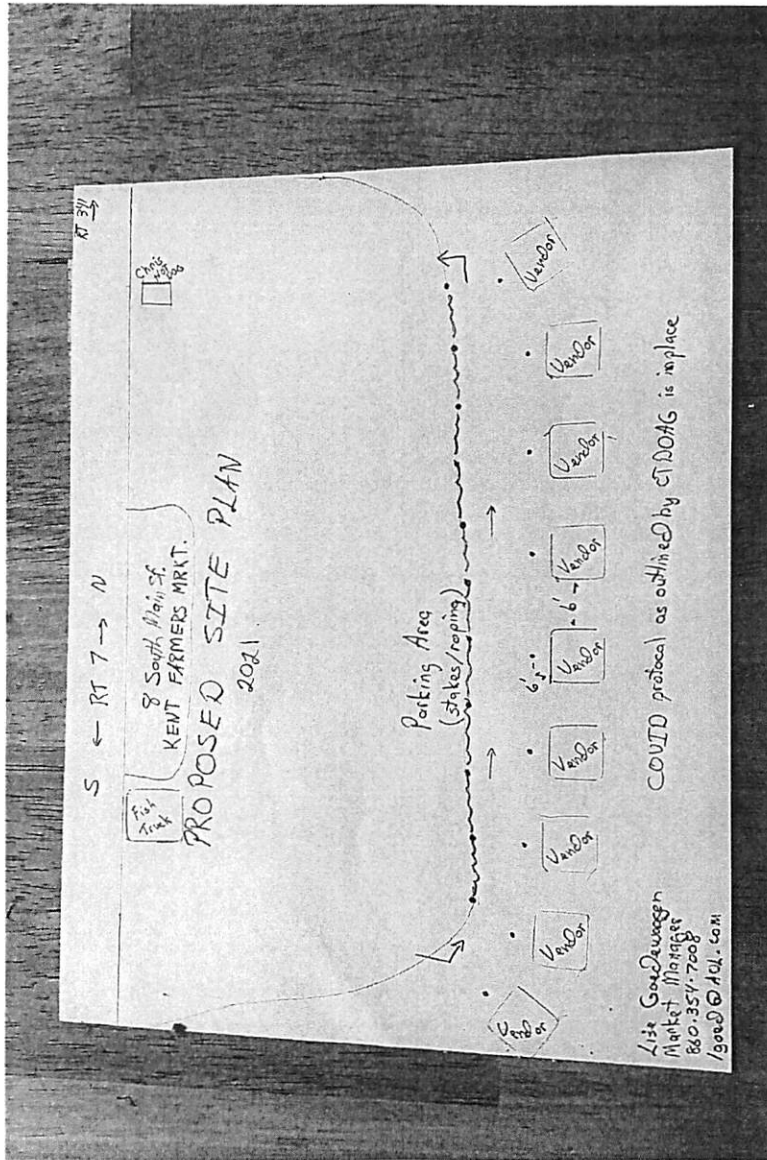 S ← RT 7 → N
RT 341 →
8 South Main St.
KENT FARMERS MRKT.
PROPOSED SITE PLAN
2021
Fish
Truck
Chris
HOT
DOG
Parking Area
(stakes/roping)
→
→
6'
6' →
Vendor
Vendor
Vendor
Vendor
Vendor
Vendor
Vendor
Vendor
Vendor
COVID protocal as outlined by CTDOAG is in place
Lise Goedewaagen
Market Manager
860.354.7008
lgoed@AOL.COM